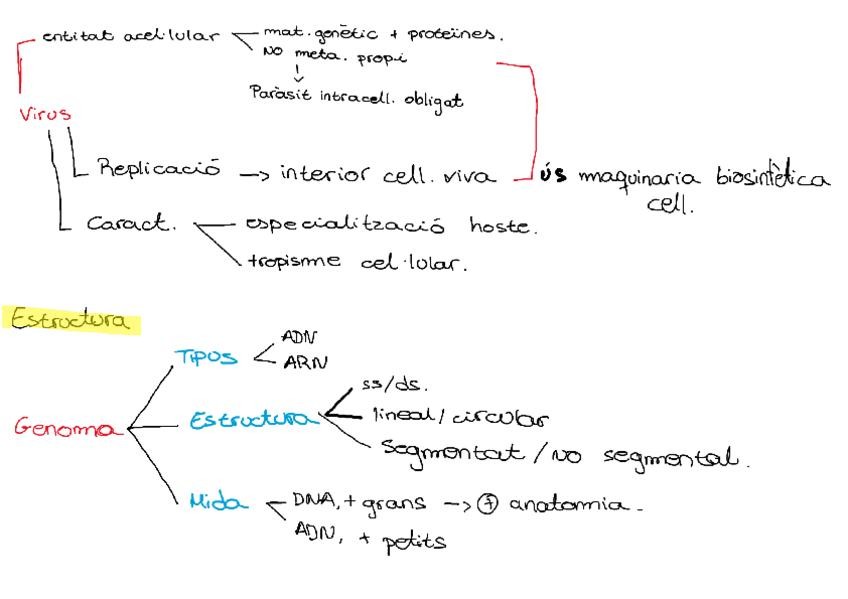 entitat acel·lular mat. genètic + proteïnes.
NO meta. propi
↓
Paràsit intracell. obligat
Virus
Replicació → interior cell. viva ús maquinaria biosintètica
cell.
Caract. especialització hoste.
tropisme cel·lular.
Estructura
TIPOS ADN
ARN
Genoma Estructura ss/ds.
lineal/circular
Segmentat / NO segmental.
Mida DNA, + grans → + anatomia.
ADN, + petits